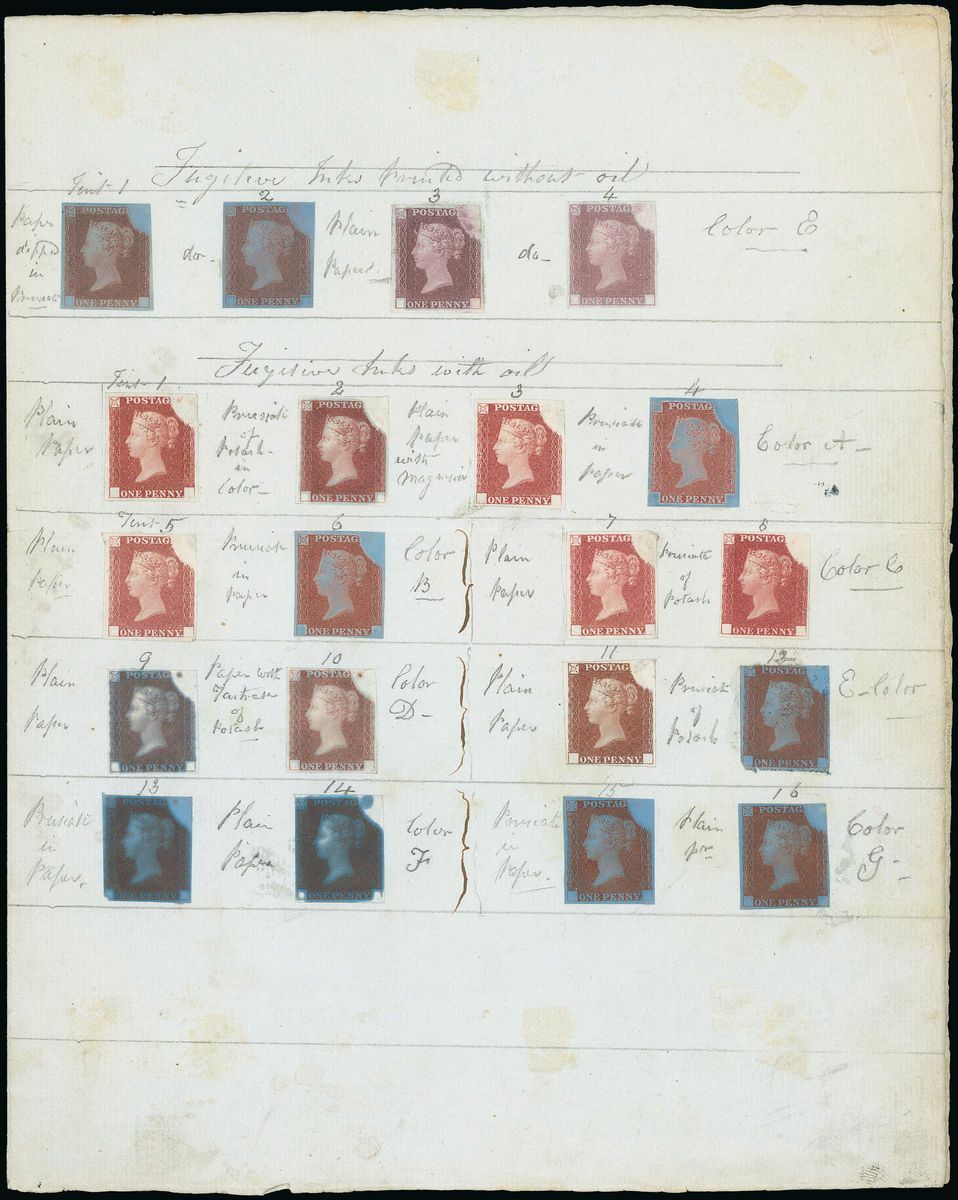 Fugitive Inks Printed without oil
Tint 1
2
3
4
Paper
dipped
in
Prussiate
POSTAG
ONE PENNY
do-
POSTAG
ONE PENNY
Plain
Paper.
POSTAG
ONE PENNY
do-
POSTAG
ONE PENNY
Color E
Fugitive Inks with oil
Tint 1
2
3
4
Plain
Paper
POSTAG
ONE PENNY
Prusiate
of
Potash
in
Color-
POSTAG
ONE PENNY
Plain
Paper
with
Magnesia
POSTAG
ONE PENNY
Prusiate
in
Paper
POSTAG
ONE PENNY
Color A-
Tint 5
6
7
8
Plain
Paper
POSTAG
ONE PENNY
Prusiate
in
Paper
POSTAG
ONE PENNY
Color
B
Plain
Paper
POSTAG
ONE PENNY
Prusiate
of
Potash
POSTAG
ONE PENNY
Color C
9
10
11
12
Plain
Paper
POSTAG
ONE PENNY
Paper with
Tartrate
of
Potash
POSTAG
ONE PENNY
Color
D-
Plain
Paper
POSTAG
ONE PENNY
Prusiate
of
Potash
POSTAG
ONE PENNY
E-Color
13
14
15
16
Prusiate
in
Paper.
POSTAG
ONE PENNY
Plain
Paper
POSTAG
ONE PENNY
Color
F
Prusiate
in
Paper.
POSTAG
ONE PENNY
Plain
ppr
POSTAG
ONE PENNY
Color
G-